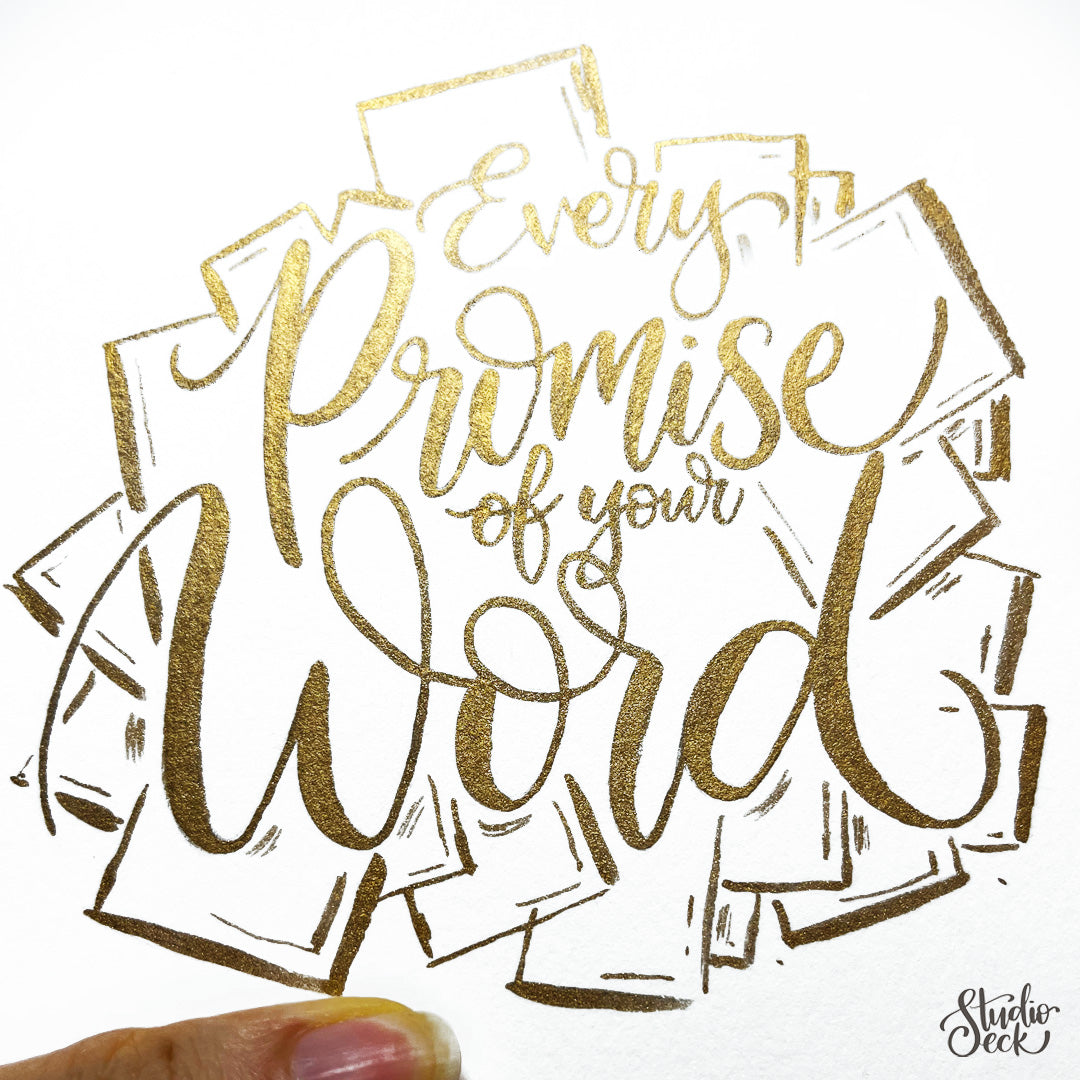 Every
Promise
of your
Word
Studio
Seck